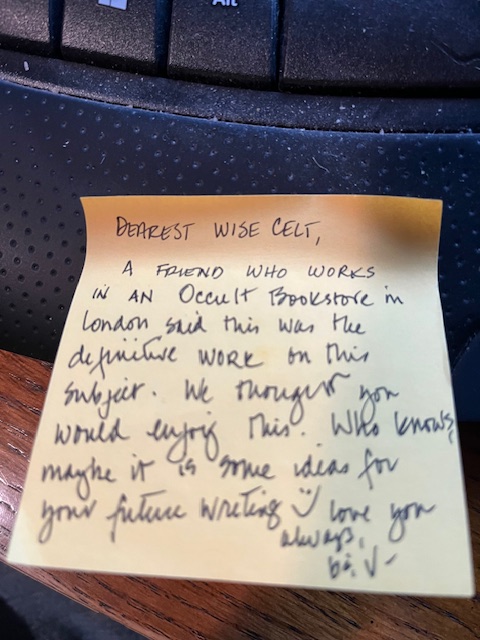 Alt
DEAREST WISE CELT,
A FRIEND WHO WORKS
in AN Occult Bookstore in
London said this was the
definitive WORK on this
subject. We thought you
would enjoy this. Who knows,
maybe it is some ideas for
your future writing love you
always,